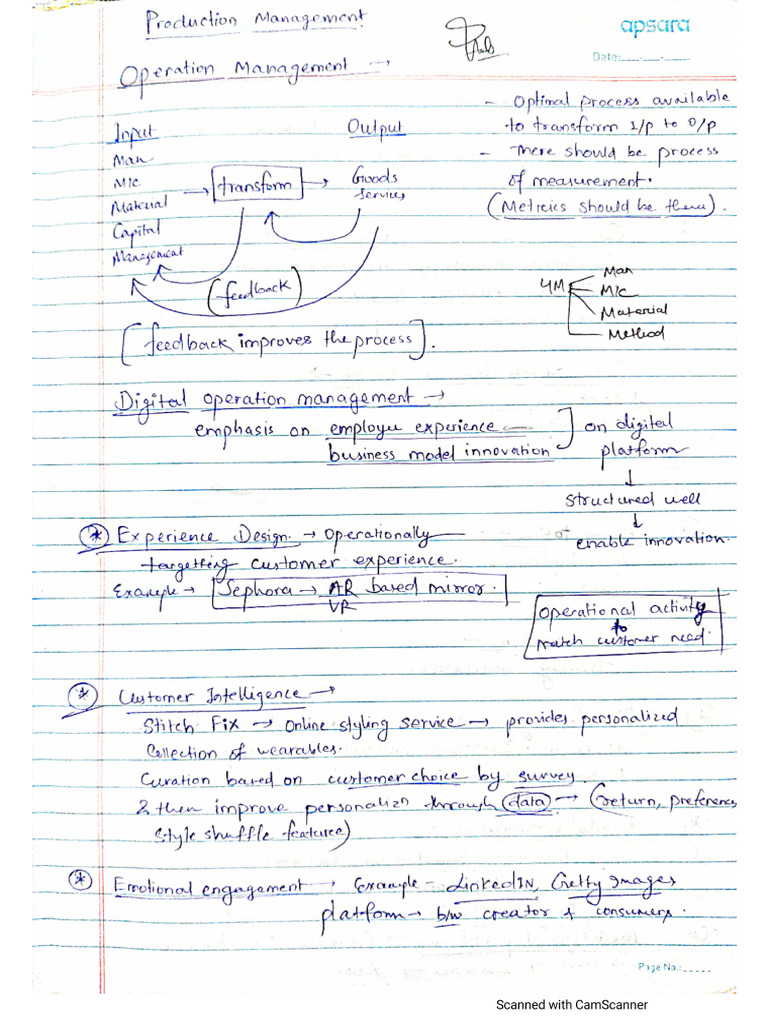 Production Management
apsara
Date:__.__.__
Operation Management →
Input
Output
Man
M/C
Material
Capital
Management
transform
Goods
services
- Optimal process available
to transform I/P to O/P
- There should be process
of measurement.
(Metrics should be there).
(feedback)
4M
Man
M/C
Material
Method
[feedback improves the process].
Digital operation management →
emphasis on employee experience
business model innovation
on digital
platform
↓
structured well
↓
enable innovation.
* Experience Design. → Operationally
targetting customer experience.
Example → Sephora → AR based mirror.
VR
Operational activity
to
match customer need.
* Customer Intelligence →
Stitch Fix → Online styling service → provides personalized
Collection of wearables.
Curation based on customer choice by survey
& then improve personalizn through data → (return, preference,
style shuffle features)
* Emotional engagement → Example - LinkedIN, Getty Images
platform → b/w creator & consumers.
Page No.:_____
Scanned with CamScanner